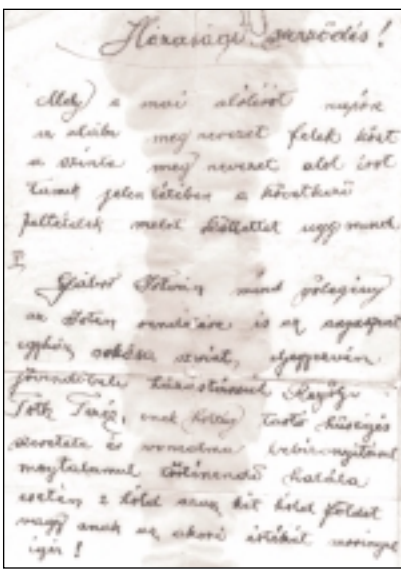 Házassági szerződés!
Mely a mai alólirót napon
az alább meg nevezet felek közt
a szinte meg nevezet alol irot
tanuk jelen létében a következő
feltételek melet köttettet ugy mind
I.
Gábor István mind vőlegény
az Isten rendelése is az
egyház szokása szerint,
jövendőbeli házastársául
Tóth Teréz, enek holtig tartó hűséges
szeretete és vonzalma
magtalanul történendő halála
esetén 2 hold azaz két hold földet
vagy anak az akori értékét
igér!